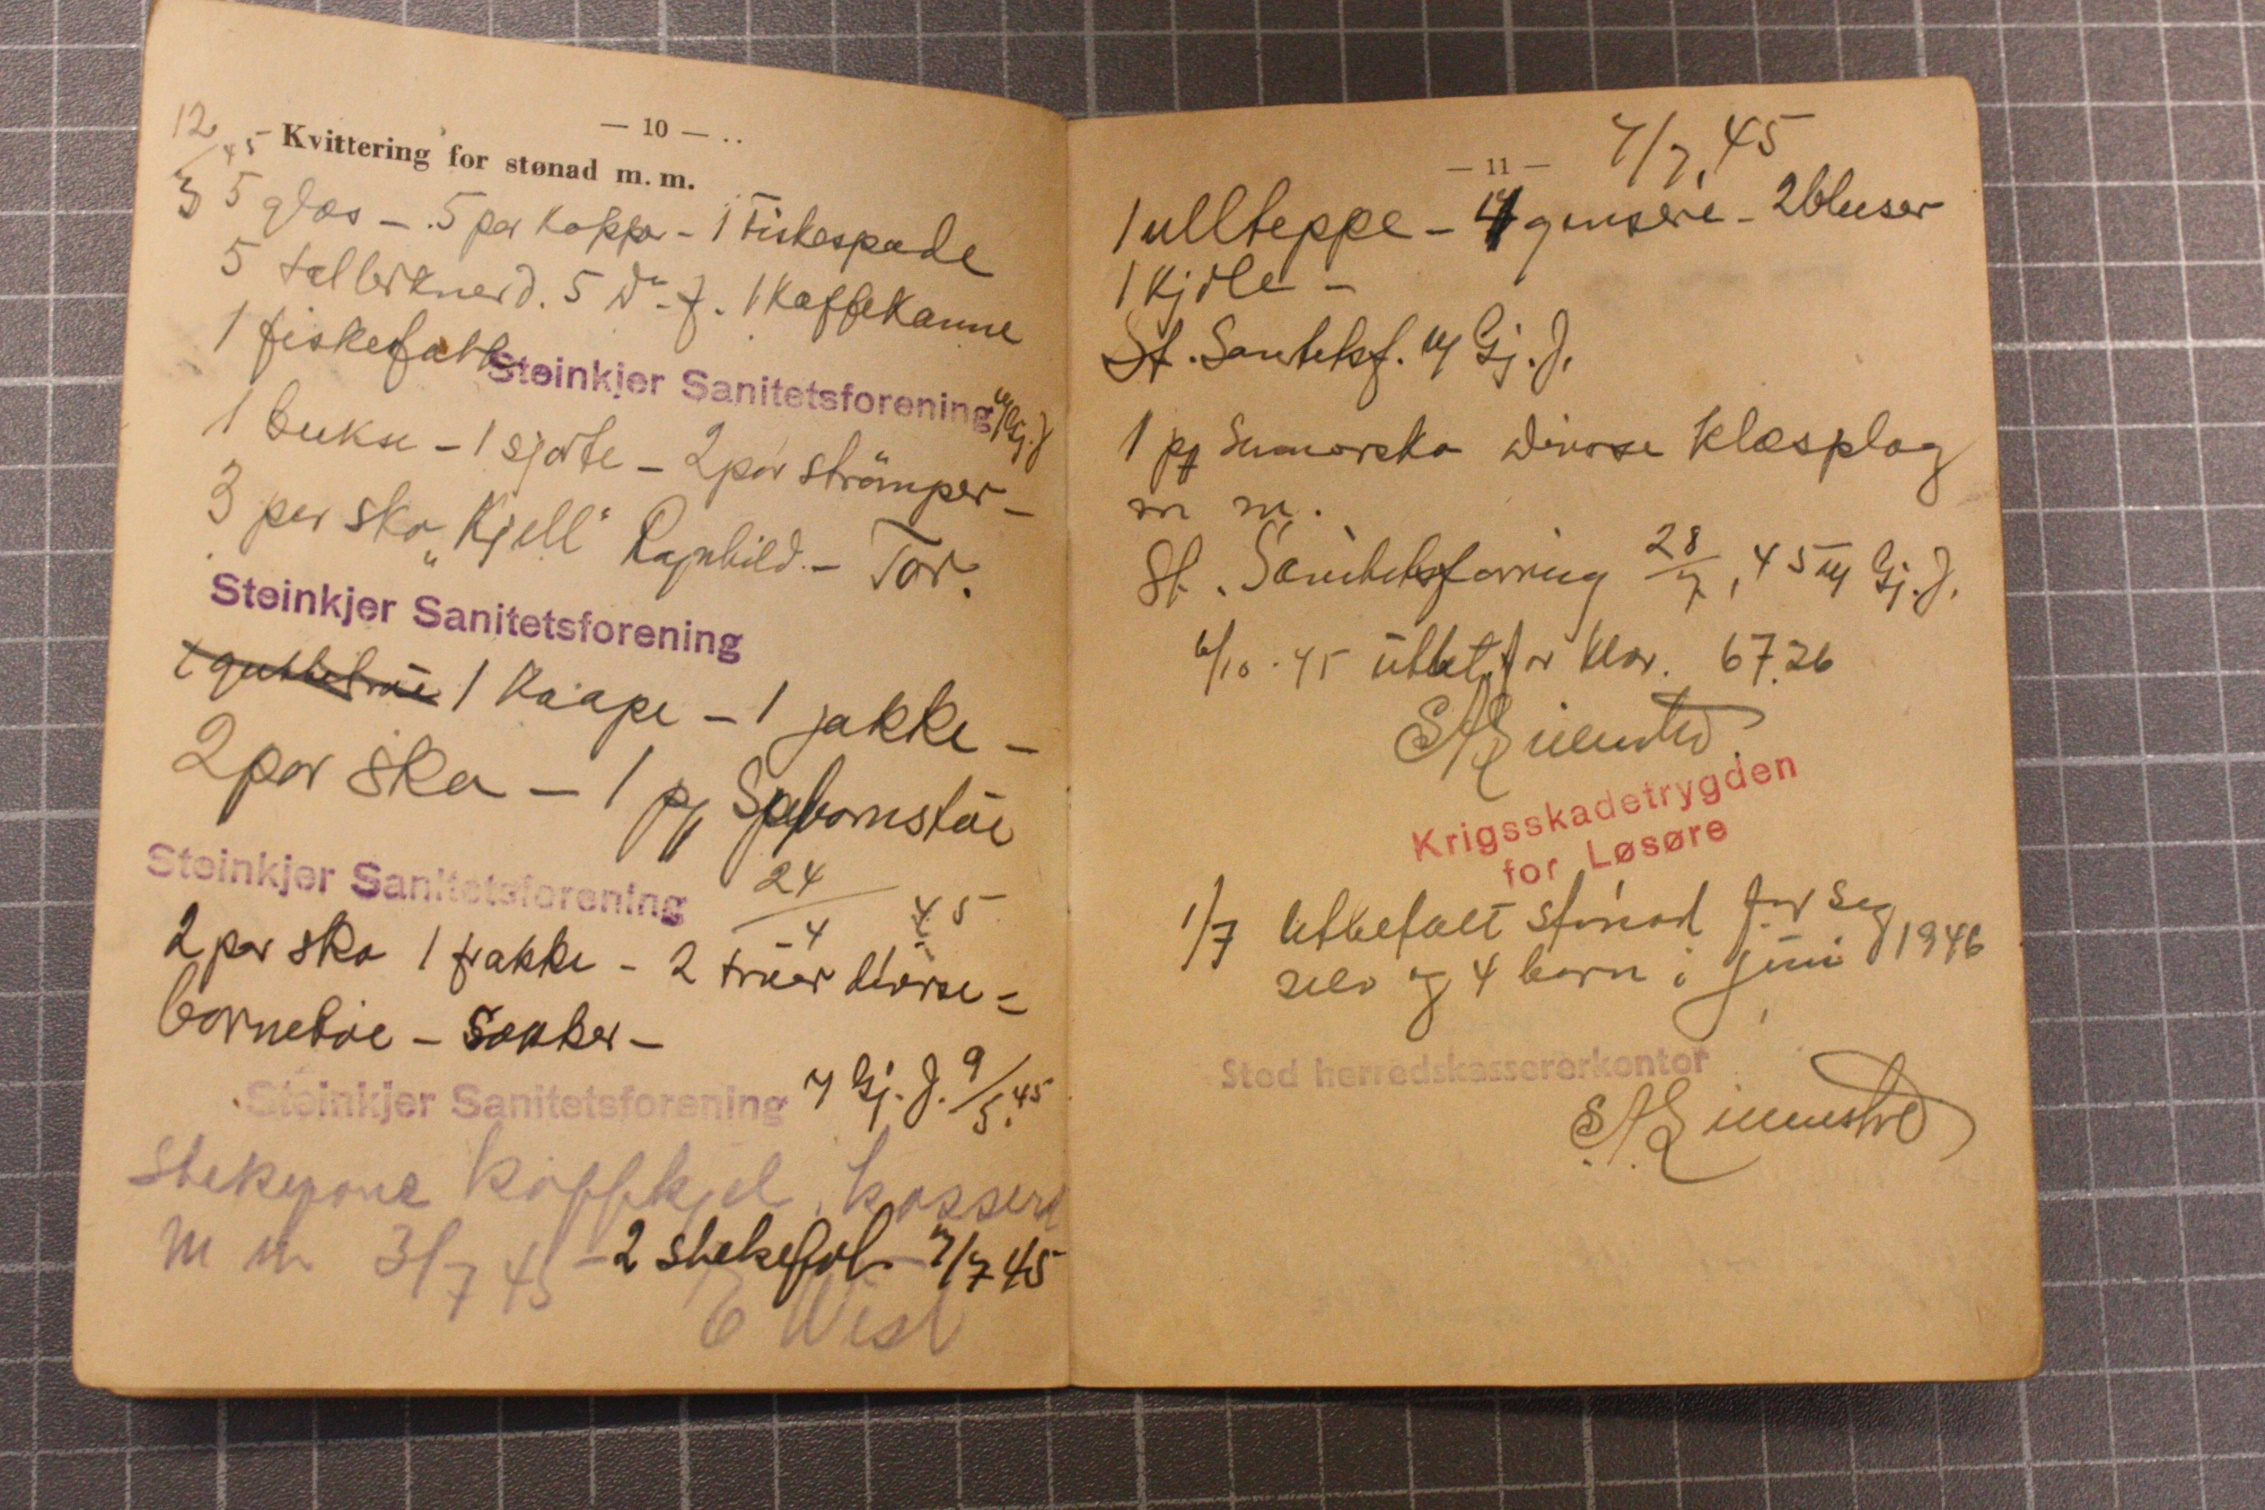 — 10 —
12/3 45
Kvittering for stønad m. m.
5 glas - 5 par kopper - 1 Fiskespade
5 tallerkner d. 5 do f. 1 Kaffekanne
1 fiskefatt
Steinkjer Sanitetsforening
Gj. J
1 bukse - 1 sjorte - 2 par strömper -
3 par sko "Kjell" Ragnhild - Tor.
Steinkjer Sanitetsforening
1 Kaape - 1 jakke -
2 par sko - 1 pk Spebornstöi
Steinkjer Sanitetsforening 24/4 45
2 par sko 1 frakke - 2 tröier diverse -
bornetöi - Sokker -
Steinkjer Sanitetsforening Gj. J. 9/5 45
Stekepane Kaffekjel,
m m 3/7 45 - 2 stekefat - 7/7 45
— 11 —
7/7, 45
1 ullteppe - 4 gensere - 2 bluser
1 Kjole -
St. Sanitetsf. Gj. J.
1 pk Sumarsko diverse klesplag
m m.
St. Sanitetsforening 28/7, 45 Gj. J.
6/10 - 45 utbet. for klær. 67.26
Krigsskadetrygden
for Løsøre
1/7 utbetalt stönad for seg
selv og 4 barn i juni 1946
Stod herredskassererkontor